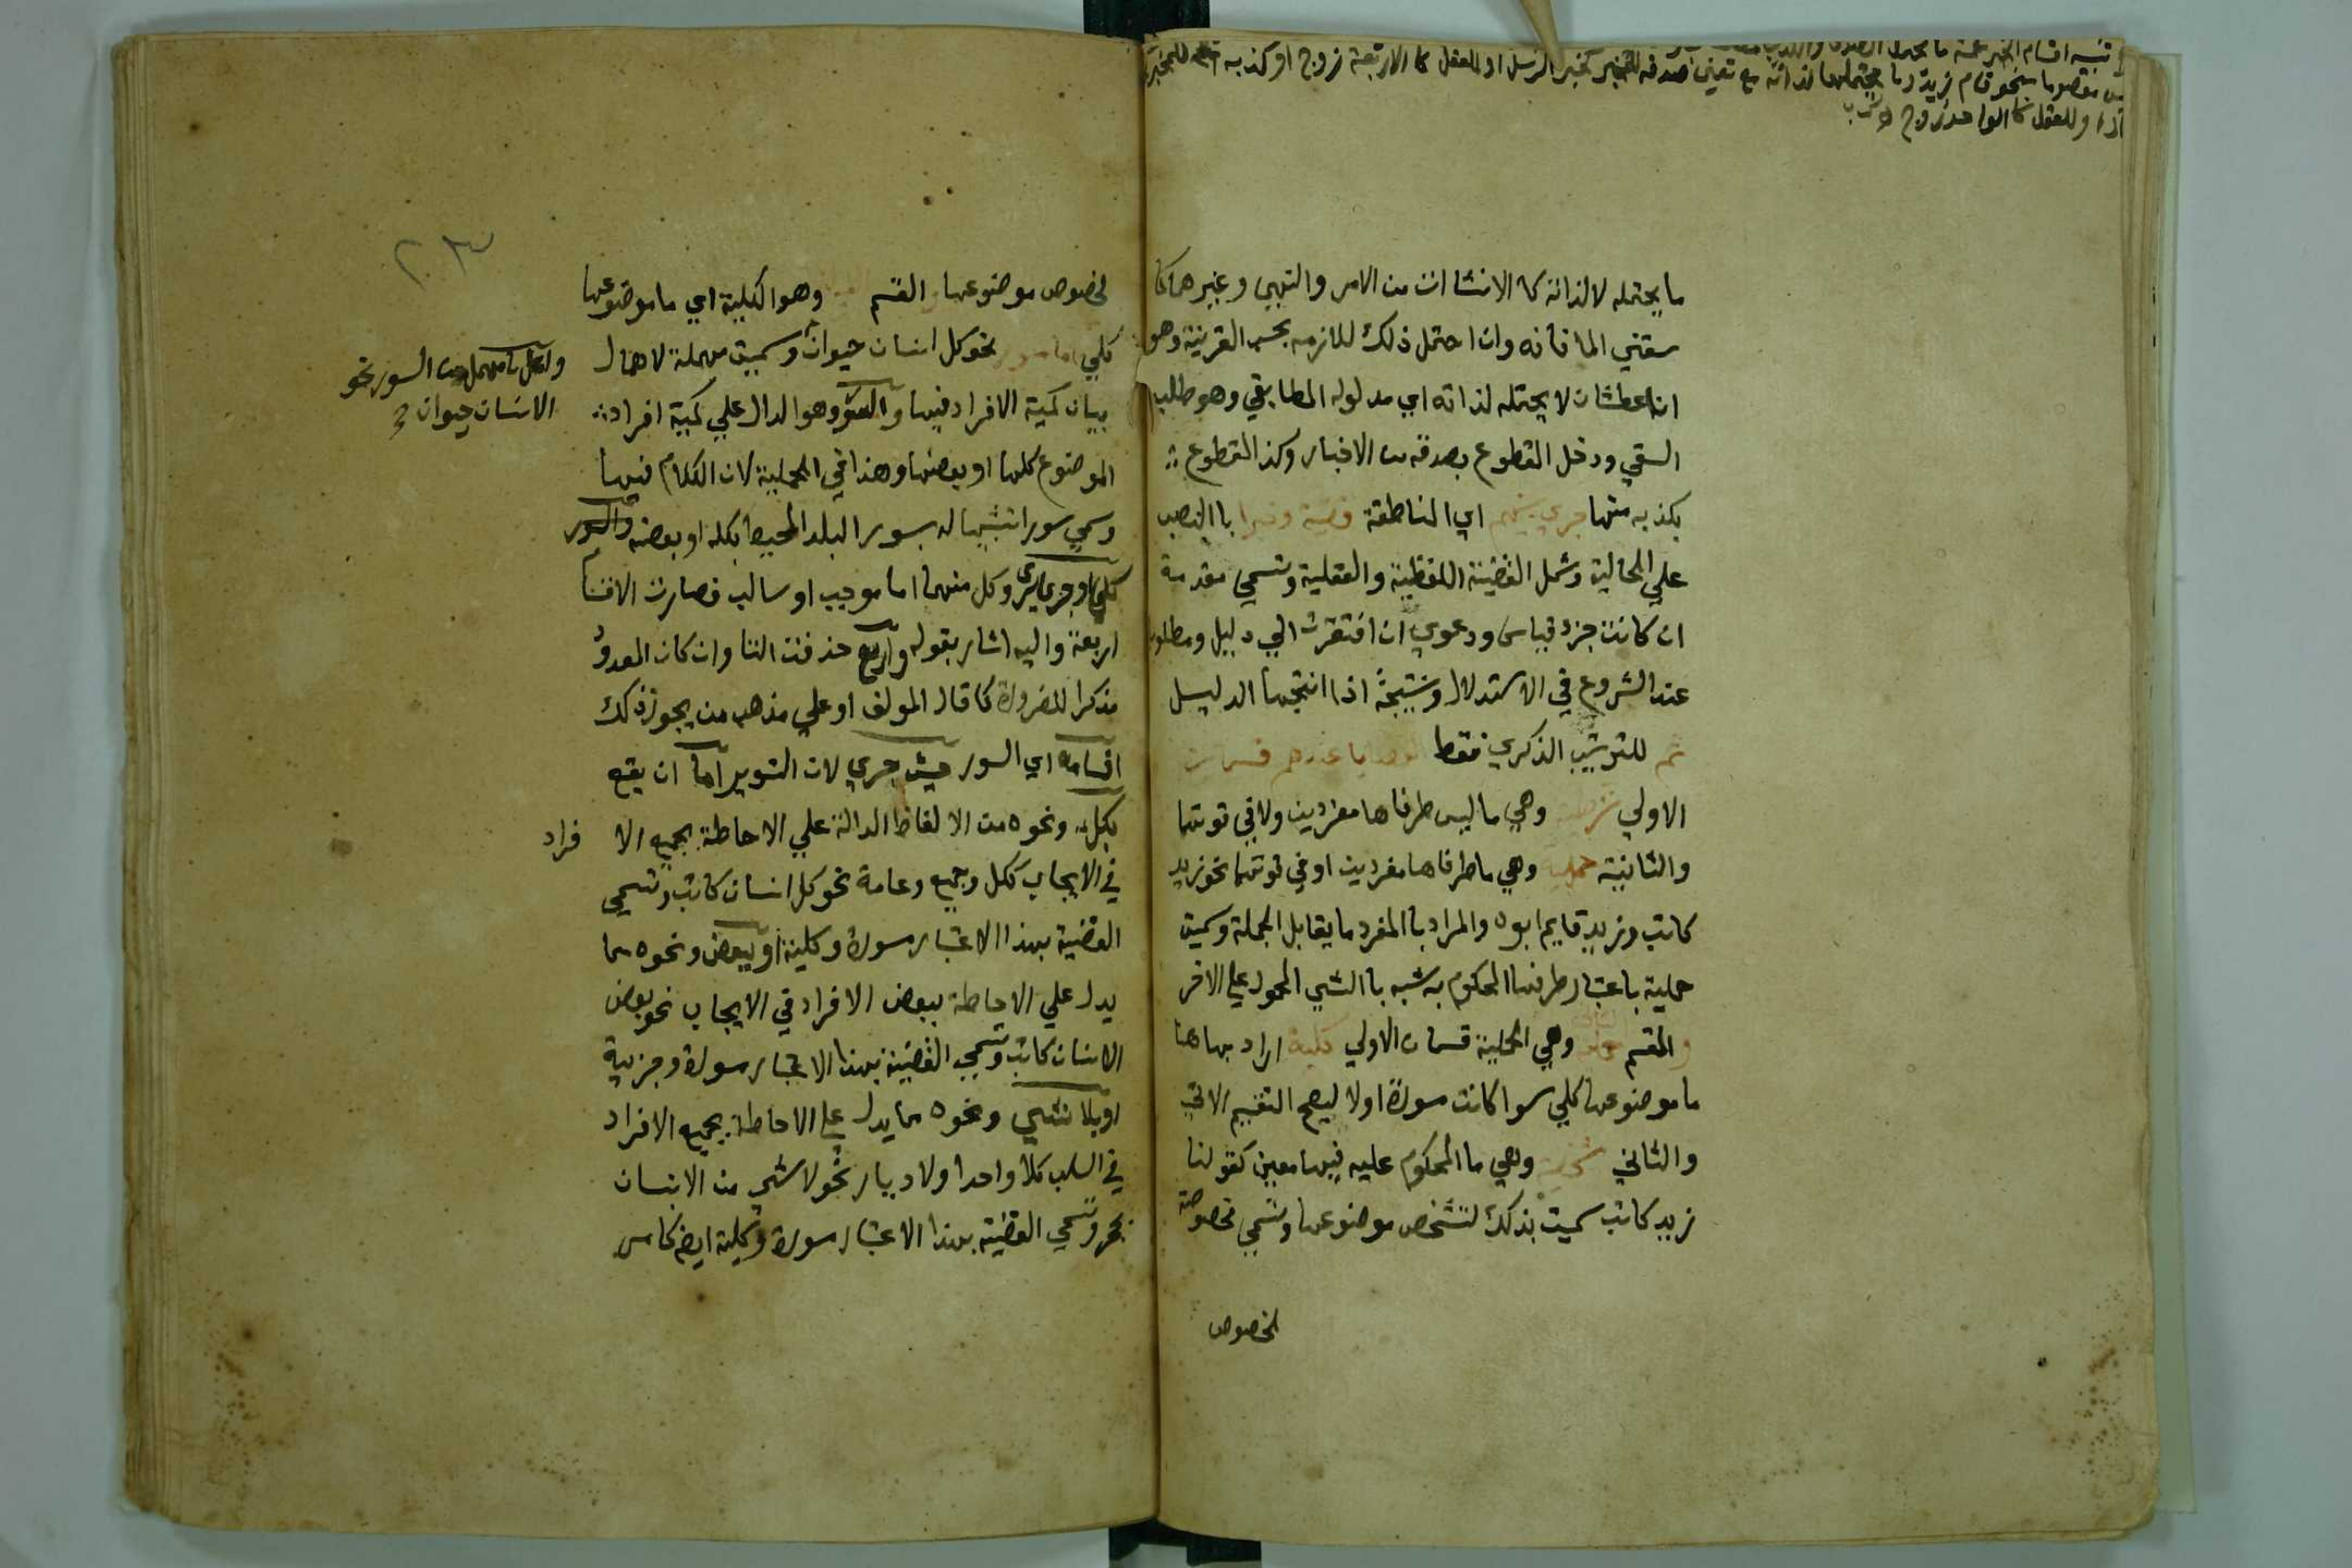 تنبيه اقسام الخبر ما يحتمل الصدق
نحو قام زيد وما يحتملهما لذاته مع تعين صدقه كخبر الرسل او للعقل كالاربعة زوج او كذبه
او للعقل كالواحد زوج
ما يحتمله لا لذاته كالانشاات من الامر والنهي وغيرهما كا
سقني الما فانه وان احتمل ذلك للازمه بحسب القرينة وهو
انا عطشان لا يحتمله لذاته اي مدلوله المطابقي وهو طلب
السقي ودخل القطوع بصدقه من الاخبار وكذا القطوع
بكذبه منها جري بينهم اي المناطقة قضية وخبرا باالنصب
علي الحالية وشمل القضية اللفظية والعقلية وتسمي مقدمة
ان كانت جزء قياس ودعوي ان افتقرت الي دليل ومطلوب
عند الشروع في الاستدلال ونتيجة اذا انتجها الدليل
ثم للترتيب الذكري فقط القضايا عندهم قسمان
الاولي شرطية وهي ما ليس طرفاها مفردين ولا في قوتهما
والثانية حملية وهي ما طرفاها مفردين او في قوتهما نحو زيد
كاتب وزيد قايم ابوه والمراد باالمفرد ما يقابل الجملة وسميت
حملية باعتبار طرفها المحكوم به شبه باالشي المحمول علي الاخر
والقسم وهي الحملية قسمان الاولي كلية اراد بها هنا
ما موضوعها كلي سوا كانت مسورة اولا ليصح التقسيم الاتي
والثاني شخصية وهي ما المحكوم عليه فيها معين كقولنا
زيد كاتب سميت بذلك لتشخص موضوعها وتسمي مخصوصة
لخصوص
٢٠٣
لخصوص موضوعها القسم وهو الكلية اي ما موضوعها
كلي اما مسور نحو كل انسان حيوان وسميت مهملة لاهمال
واما مهمل من السور نحو
الانسان حيوان
بيان كمية الافراد فيها والسور وهو الدال علي كمية افراد
الموضوع كلها او بعضها وهذا في الحملية لان الكلام فيها
وسمي سورا تشبيها له بسور البلد المحيط بكله او بعضه والسور
كليا وجزييا يري وكل منهما اما موجب او سالب فصارت الاقسام
اربعة واليه اشار بقوله واربع حذفت التا وان كان المعدود
مذكرا للضرورة كما قال المولف او علي مذهب من يجوز ذلك
اقسامه اي السور حيث جري لان التسوير اما ان يقع
بكل ونحوه من الالفاظ الدالة علي الاحاطة بجميع الا فراد
في الايجاب ككل وجميع وعامة نحو كل انسان كاتب وتسمي
القضية بهذا الاعتبار مسورة وكلية او ببعض ونحوه مما
يدل علي الاحاطة ببعض الافراد في الايجاب نحو بعض
الانسان كاتب وتسمي القضية بهذا الاعتبار مسورة وجزيية
او بلا شي ونحوه مما يدل علي الاحاطة بجميع الافراد
في السلب كلا واحد ولا ديار نحو لا شي من الانسان
بحجر وتسمي القضية بهذا الاعتبار مسورة وكلية ايضا كما مر